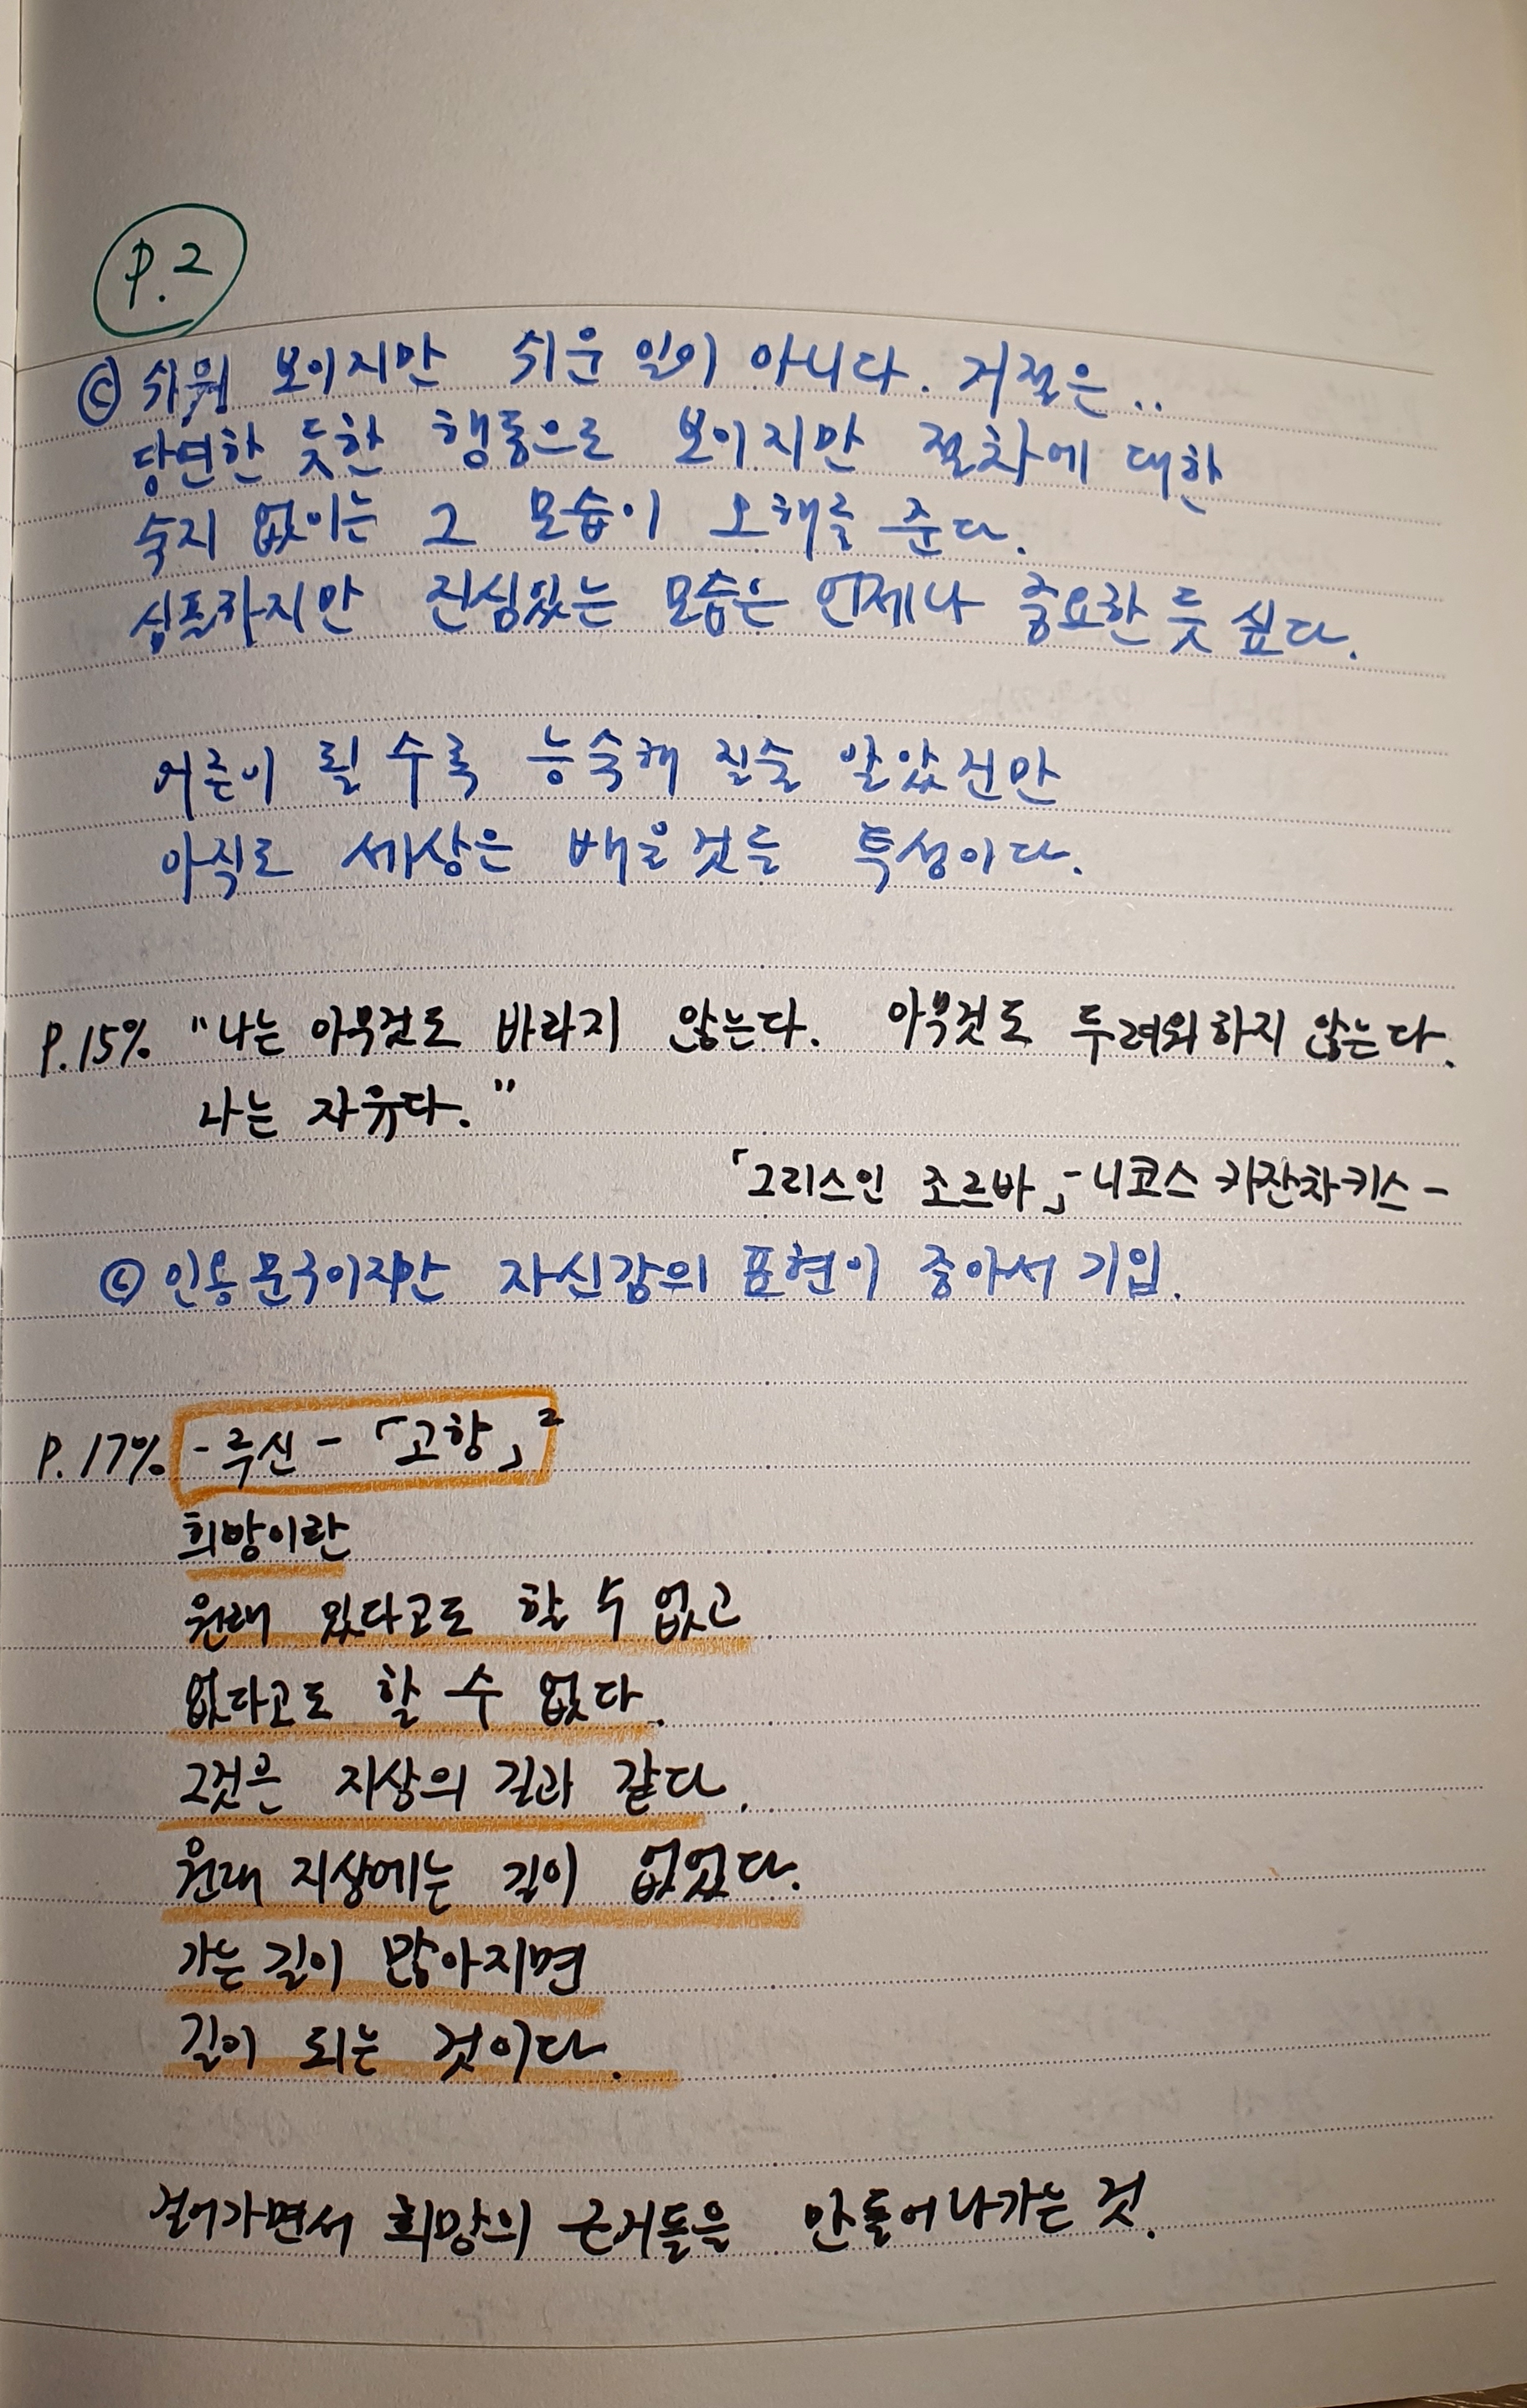 P.2
ⓒ 쉬워 보이지만 쉬운 일이 아니다. 거절은..
당연한 듯한 행동으로 보이지만 절차에 대한
숙지 없이는 그 모습이 오해를 준다.
심플하지만 진심있는 모습은 언제나 중요한 듯 싶다.
어른이 될 수록 능숙해 질줄 알았건만
아직도 세상은 배울것들 투성이다.
P.15% "나는 아무것도 바라지 않는다. 아무것도 두려워하지 않는다.
나는 자유다."
「그리스인 조르바」- 니코스 카잔차키스 -
ⓒ 인용문구이지만 자신감의 표현이 좋아서 기입.
P.17% - 루신 - 「고향」2
희망이란
원래 있다고도 할 수 없고
없다고도 할 수 없다.
그것은 지상의 길과 같다.
원래 지상에는 길이 없었다.
가는 길이 많아지면
길이 되는 것이다.
걸어가면서 희망의 근거들을 만들어나가는 것.